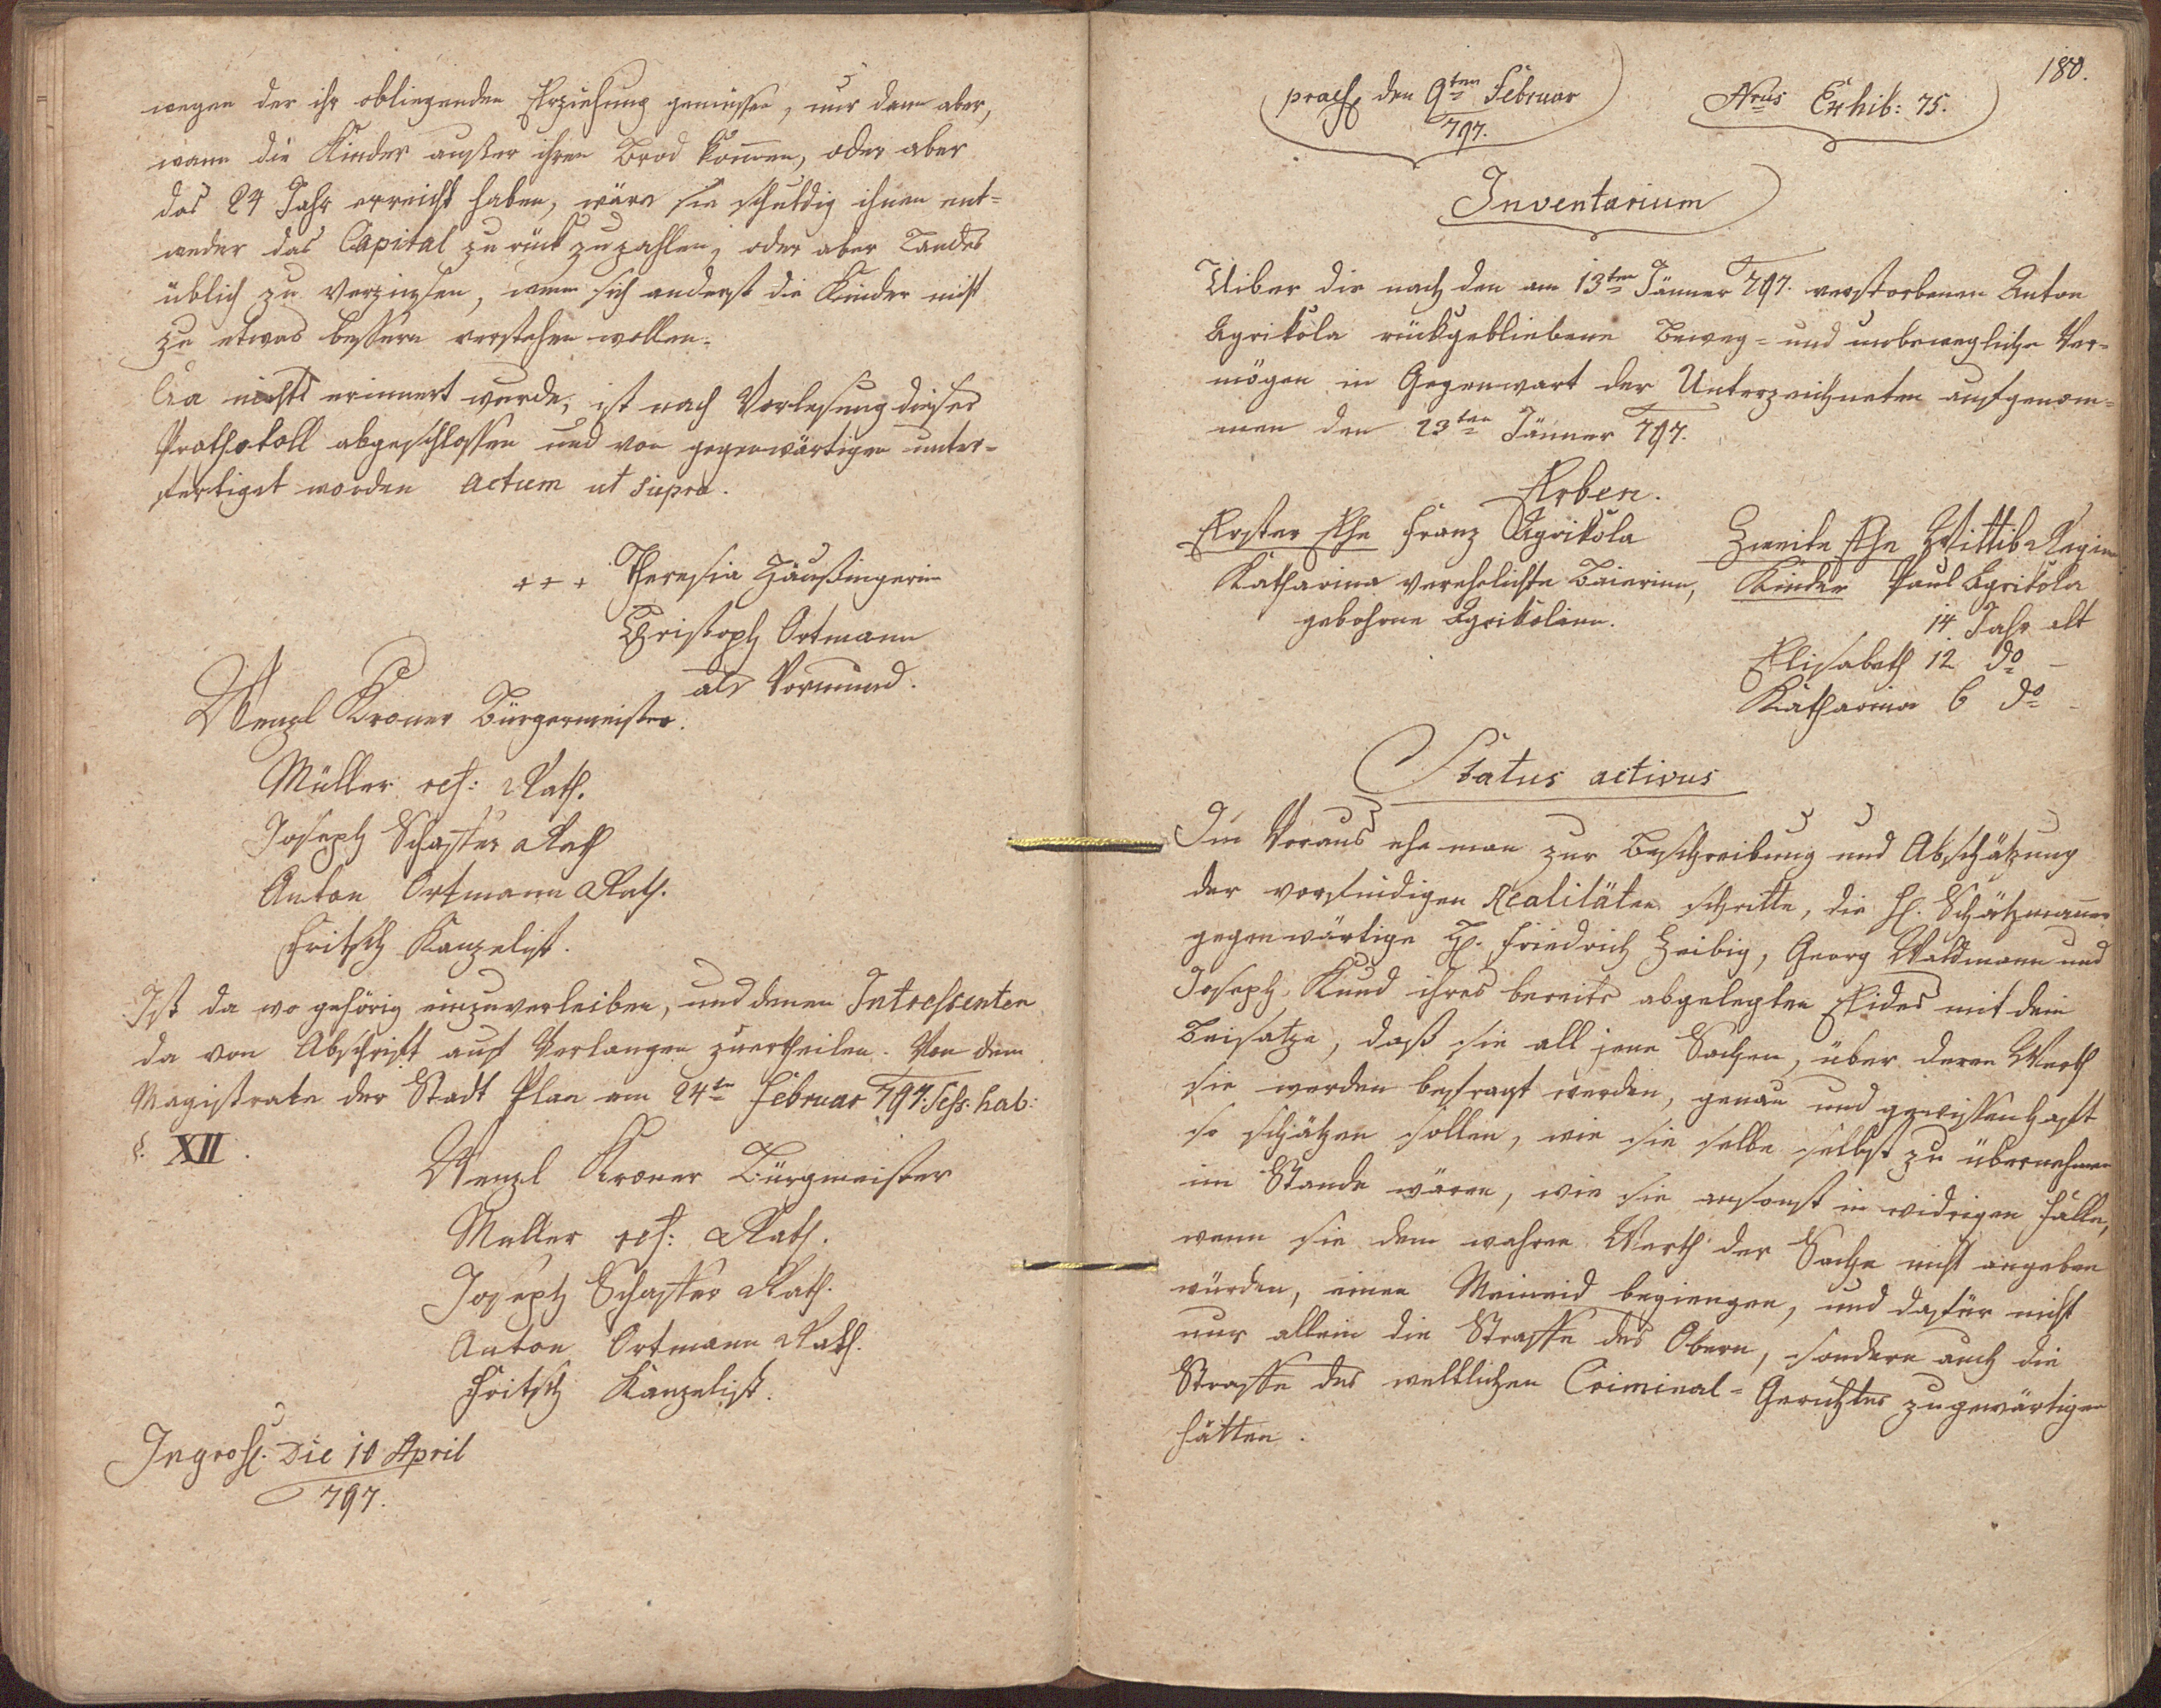 wegen der ihr obliegenden Erziehung genüssen, nur dann aber,
wann die Kinder außer ihren Brod kom̅en, oder aber
das 24 Jahr erreicht haben, wäre sie schuldig ihnen ent=
weder das Capital zurück zuzahlen, oder aber Landes
üblich zu Verzinsen, wenn sich anderst die Kinder nicht
zu etwas bessern verstehen wollen.
Da nichts erinnert wurde, ist nach Vorlesung dieses
Prothokoll abgeschlossen und von gegenwärtigen unter=
fertiget worden actum ut supra.
+++ Theresia Häußingerin
Christoph Ortmann
als Vormund.
Wenzl Kroner Bürgermeister.
Müller Rath.
Joseph Schaffer Rath
Anton Ortmann Rath.
Fritsch Kanzelist.
Ist da wo gehörig einzuverleiben, und denen Intressenten
da von Abschrift auf Verlangen zuertheilen. Von dem
Magistrate der Stadt Plan am 24ten Februar 797. Sess: hab:
§. XII.
Wenzl Kroner Bürgmeister
Müller Rath.
Joseph Schaffer Rath.
Anton Ortmann Rath.
Fritsch Kanzelist.
Ingross. Die 10 April
797.
180.
praes. den 9ten Februar
797.
Nrus Exhib: 75.
Inventarium
Uiber die nach den am 13ten Jänner 797. verstorbenen Anton
Agrikola rückgebliebene Beweg= und unbewegliche Ver=
mögen in Gegenwart der Unterzeichneten aufgenom=
men den 23ten Jänner 797.
Erben.
Erster Ehe Franz Agrikola
Katharina verehelichte Baierinn,
gebohrne Agrikolinn.
Zweite Ehe Wittib Regina
Kinder Paul Agrikola
14 Jahr alt
Elisabeth 12 do –
Katharina 6 do –
Status activus
Im Voraus ehe man zur Beschreibung und Abschätzung
der vorfindigen Realitäten schritte, die H. Schätzmänner
gegenwärtige H. Friedrich Zeibig, Georg Waldmann und
Joseph Kund ihres bereits abgelegten Eides mit dem
Beisatze, daß sie all jene Sachen, über deren Werth
sie werden befragt werden, genau und gewissenhaft
so schätzen sollen, wie sie selbe selbst zu übernehmen
im Stande wären, wie sie ansonst in widrigen Falle,
wenn sie dem wahren Werth der Sache nicht angeben
würden, einen Meineid begiengen, und dafür nicht
nur allein die Straffe des Obern, sondern auch die
Straffe des weltlichen Criminal=Gerichtes zugewärtigen
hätten.